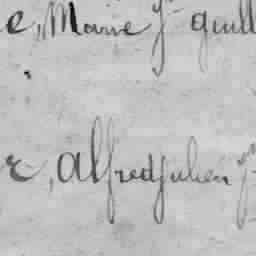 e, Marie Jn guill
r, alfred julien Jn